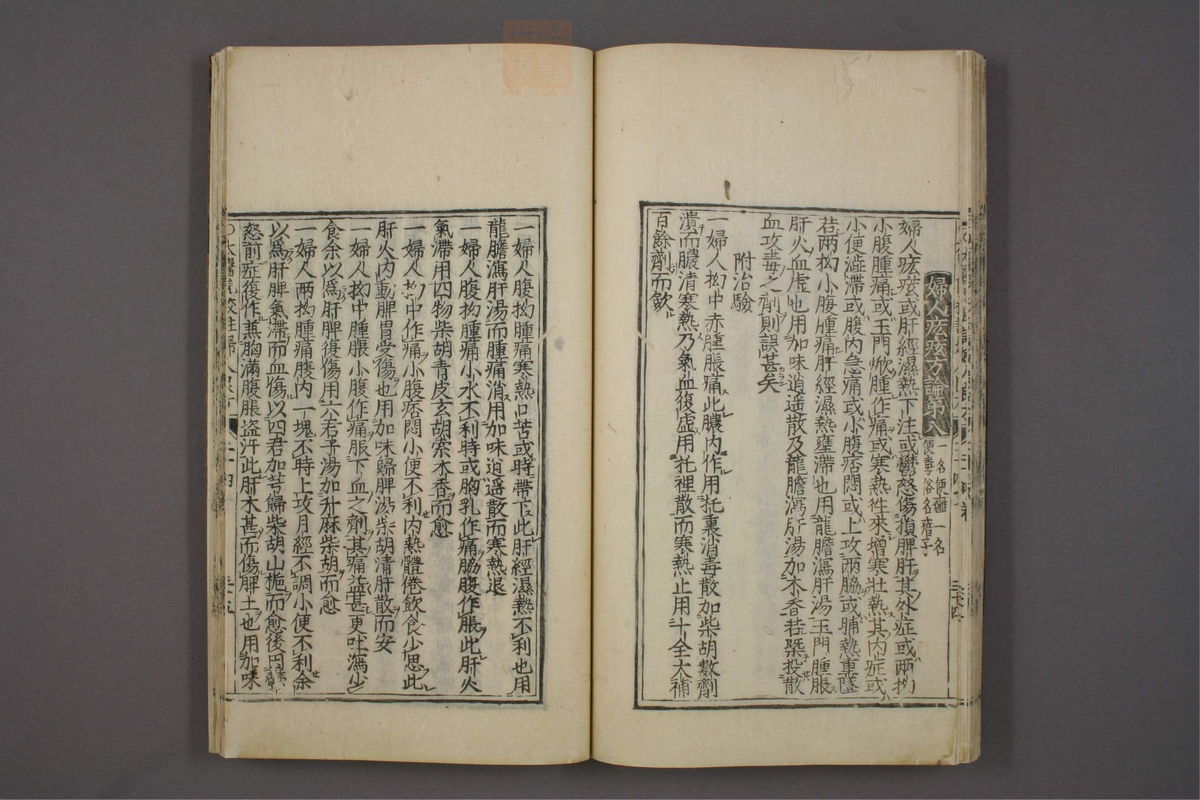 婦人疝疝方論第八
一名便癰一名
便毒俗名㿉子
婦人疝疝或肝經濕熱下注或鬱怒傷損脾肝其外症或兩拗
小腹腫痛或玉門焮腫作痛或寒熱徃來增寒壯熱其内症或
小便澁滯或腹内急痛或小腹痞悶或上攻兩脇或晡熱重墜
若兩拗小腹腫痛肝經濕熱壅滯也用龍膽瀉肝湯玉門腫脹
肝火血虛也用加味逍遥散及龍膽瀉肝湯加木香若槩投散
血攻毒之劑則誤甚矣
附治驗
一婦人拗中赤腫脹痛此膿内作用托裏消毒散加柴胡數劑
潰而膿清寒熱乃氣血復虛用托裡散而寒熱止用十全大補
百餘劑而歛
一婦人腹拗腫痛寒熱口苦或時帶下此肝經濕熱不利也用
龍膽瀉肝湯而腫痛消用加味逍遥散而寒熱退
一婦人腹拗腫痛小水不利時或胸乳作痛脇腹作脹此肝火
氣滯用四物柴胡青皮玄胡索木香而愈
一婦人拗中作痛小腹痞悶小便不利内熱體倦飲食少思此
肝火内動脾胃受傷也用加味歸脾湯柴胡清肝散而安
一婦人拗中腫脹小腹作痛服下血之劑其痛益甚更吐瀉少
食余以爲肝脾復傷用六君子湯加升麻柴胡而愈
一婦人兩拗腫痛腹内一塊不時上攻月經不調小便不利余
以爲肝脾氣滯而血傷以四君加芎歸柴胡山梔而愈後因
怒前症復作兼胸滿腹脹盜汗此肝木甚而傷脾土也用加味